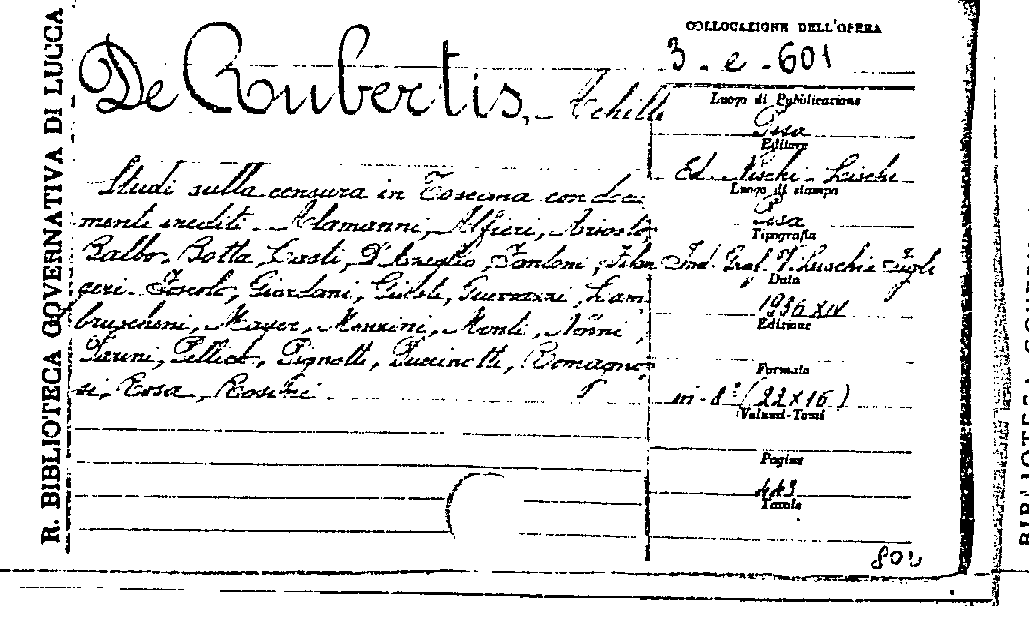 R. BIBLIOTECA GOVERNATIVA DI LUCCA
COLLOCAZIONE DELL'OPERA
3 - e - 601
De Rubertis, Achille
Studi sulla censura in Toscana con docu
menti inediti - Alamanni, Alfieri, Ariosto,
Balbo, Botta, Casti, D'Azeglio, Fantoni, Filan
geri - Foscolo, Giordani, Giusti, Guerrazzi, Lam
bruschini, Mayer, Manzini, Monti, Nonni,
Parini, Pellico, Pignotti, Puccinotti, Romagno-
si, Rosa, Roschi
Luogo di Pubblicazione
Pisa
Editore
Ed. Nischi - Lischi
Luogo di stampa
Pisa
Tipografia
Ind. Graf. V. Lischi e Figli
Data
1936 XIV
Edizione
Formato
in-8° (22x16)
Volumi-Tomi
Pagine
443
Tavole
802
BIBLIOTECA GOVERN